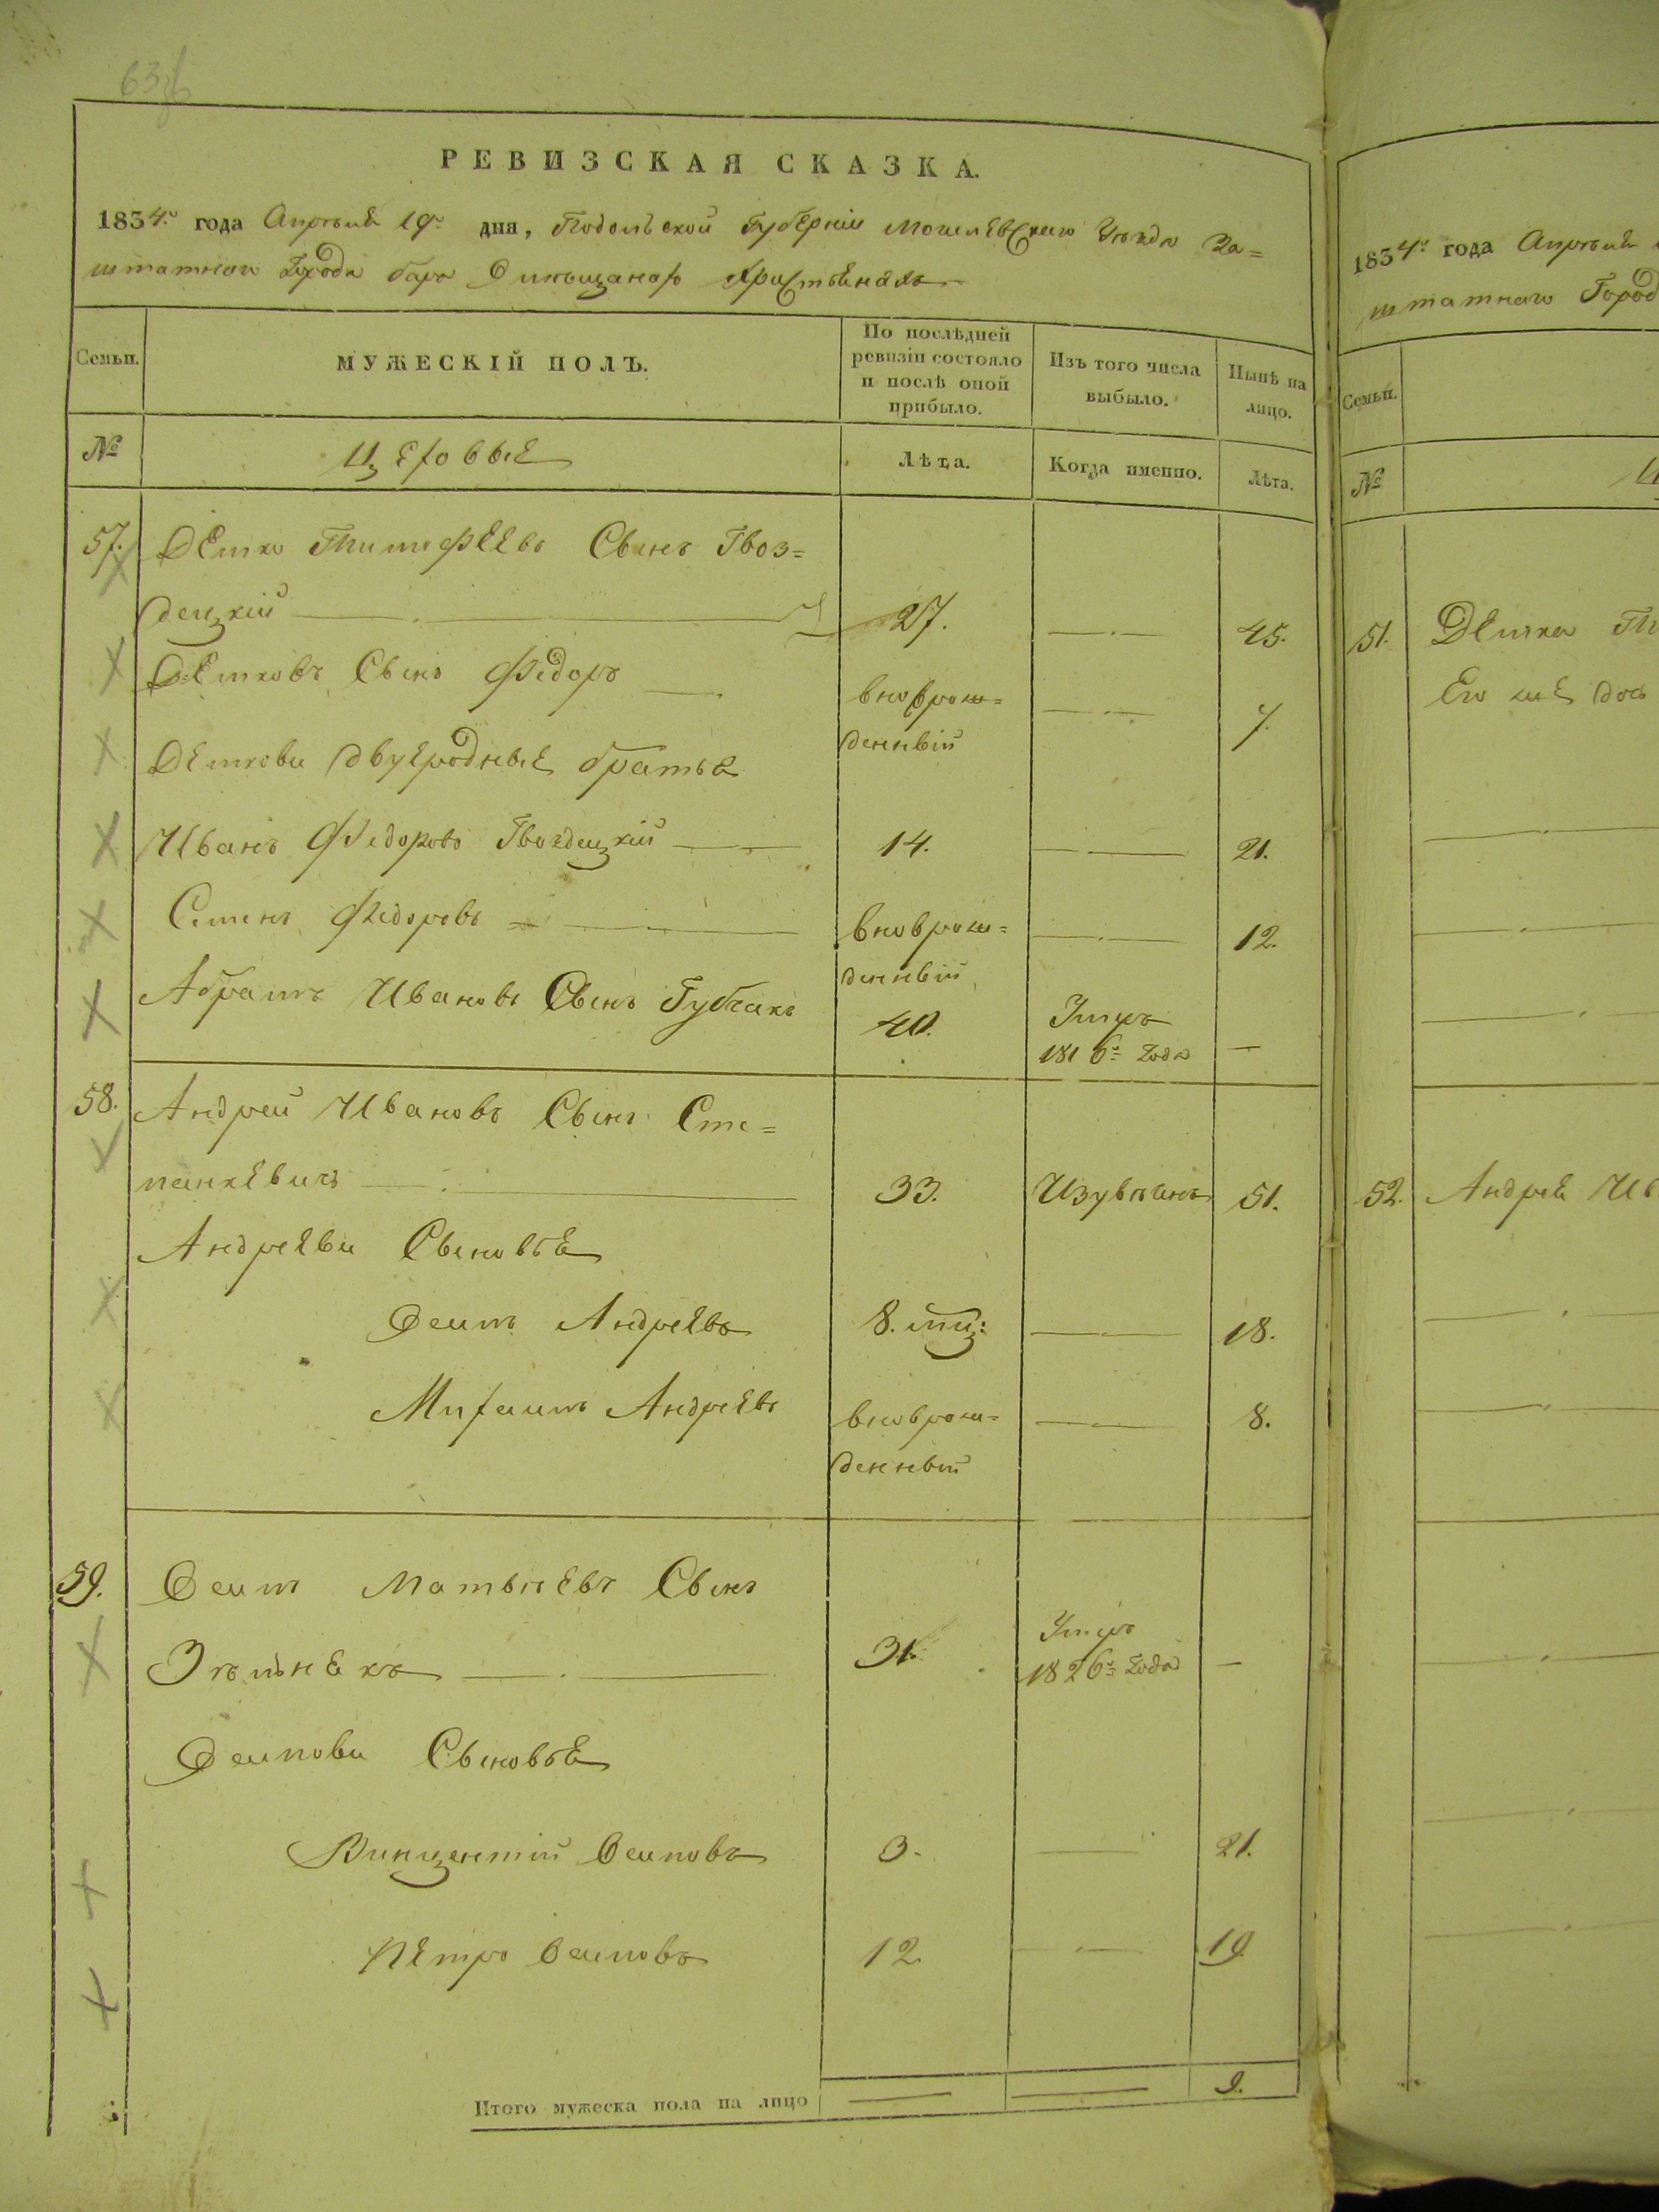 63
РЕВИЗСКАЯ СКАЗКА.
1834го года Апрѣля 19го дня, Подольской Губерніи Могилевскаго Уѣзда За=
штатнаго Города Бара о мѣщанахъ Христіянахъ
Семьи.
МУЖЕСКІЙ ПОЛЪ.
По послѣдней ревизіи состояло и послѣ оной прибыло.
Изъ того числа выбыло.
Нынѣ на лицо.
№
Цеховые
Лѣта.
Когда именно.
Лѣта.
57. Демко Тимофеевъ Сынъ Гвоз=
децкій 27. 45.
Демковъ Сынъ Федоръ вноврож=
денный 7.
Демкови двуеродные братья
Иванъ Федоровъ Гвоздецкій 14. 21.
Семенъ Федоровъ вноврож=
денный 12.
Абрамъ Ивановъ Сынъ Губчакъ 40. Умеръ
1816го года —
58. Андрей Ивановъ Сынъ Сте=
панкевичъ 33. Изувѣченъ 51.
Андрееви Сыновье
Осипъ Андреевъ 8. мц: 18.
Михаилъ Андреевъ вноврож=
денный 8.
59. Осипъ Матвѣевъ Сынъ
31. Умеръ
1826го года —
Осипови Сыновье
Винцентій Осиповъ 3. 21.
Петро Осиповъ 12 19
Итого мужеска пола на лицо 9.
1834го года Апрѣля
штатнаго Город
Семьи.
№
51. Демка
Его же дочь
52. Андрея Ив